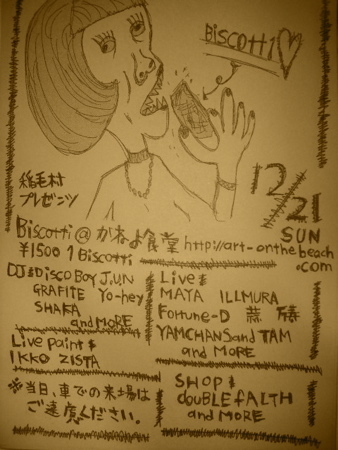 Biscotti♡
12/21
SUN
稲毛村
プレゼンツ
Biscotti @ かねよ食堂 http://art-onthebeach.com
¥1500 1 Biscotti
DJ: Disco Boy J.U.N
GRAFITE Yo-hey
SHAKA
and MORE
Live:
MAYA ILLMURA
Fortune-D
YAMCHANS and TAM
and MORE
Live paint:
IKKO ZISTA
SHOP:
doubLE fALTH
and MORE
※当日、車での来場は
ご遠慮ください。